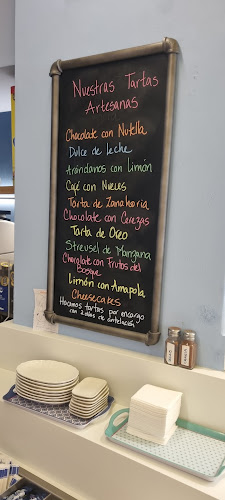 Nuestras Tartas
Artesanas
Chocolate con Nutella
Dulce de leche
Arándanos con limón
Café con Nueces
Tarta de Zanahoria
Chocolate con Cerezas
Tarta de Oreo
Streusel de Manzana
Chocolate con Frutos del
Bosque
Limón con Amapola
Cheesecakes
Hacemos tartas por encargo
con 2 días de antelación